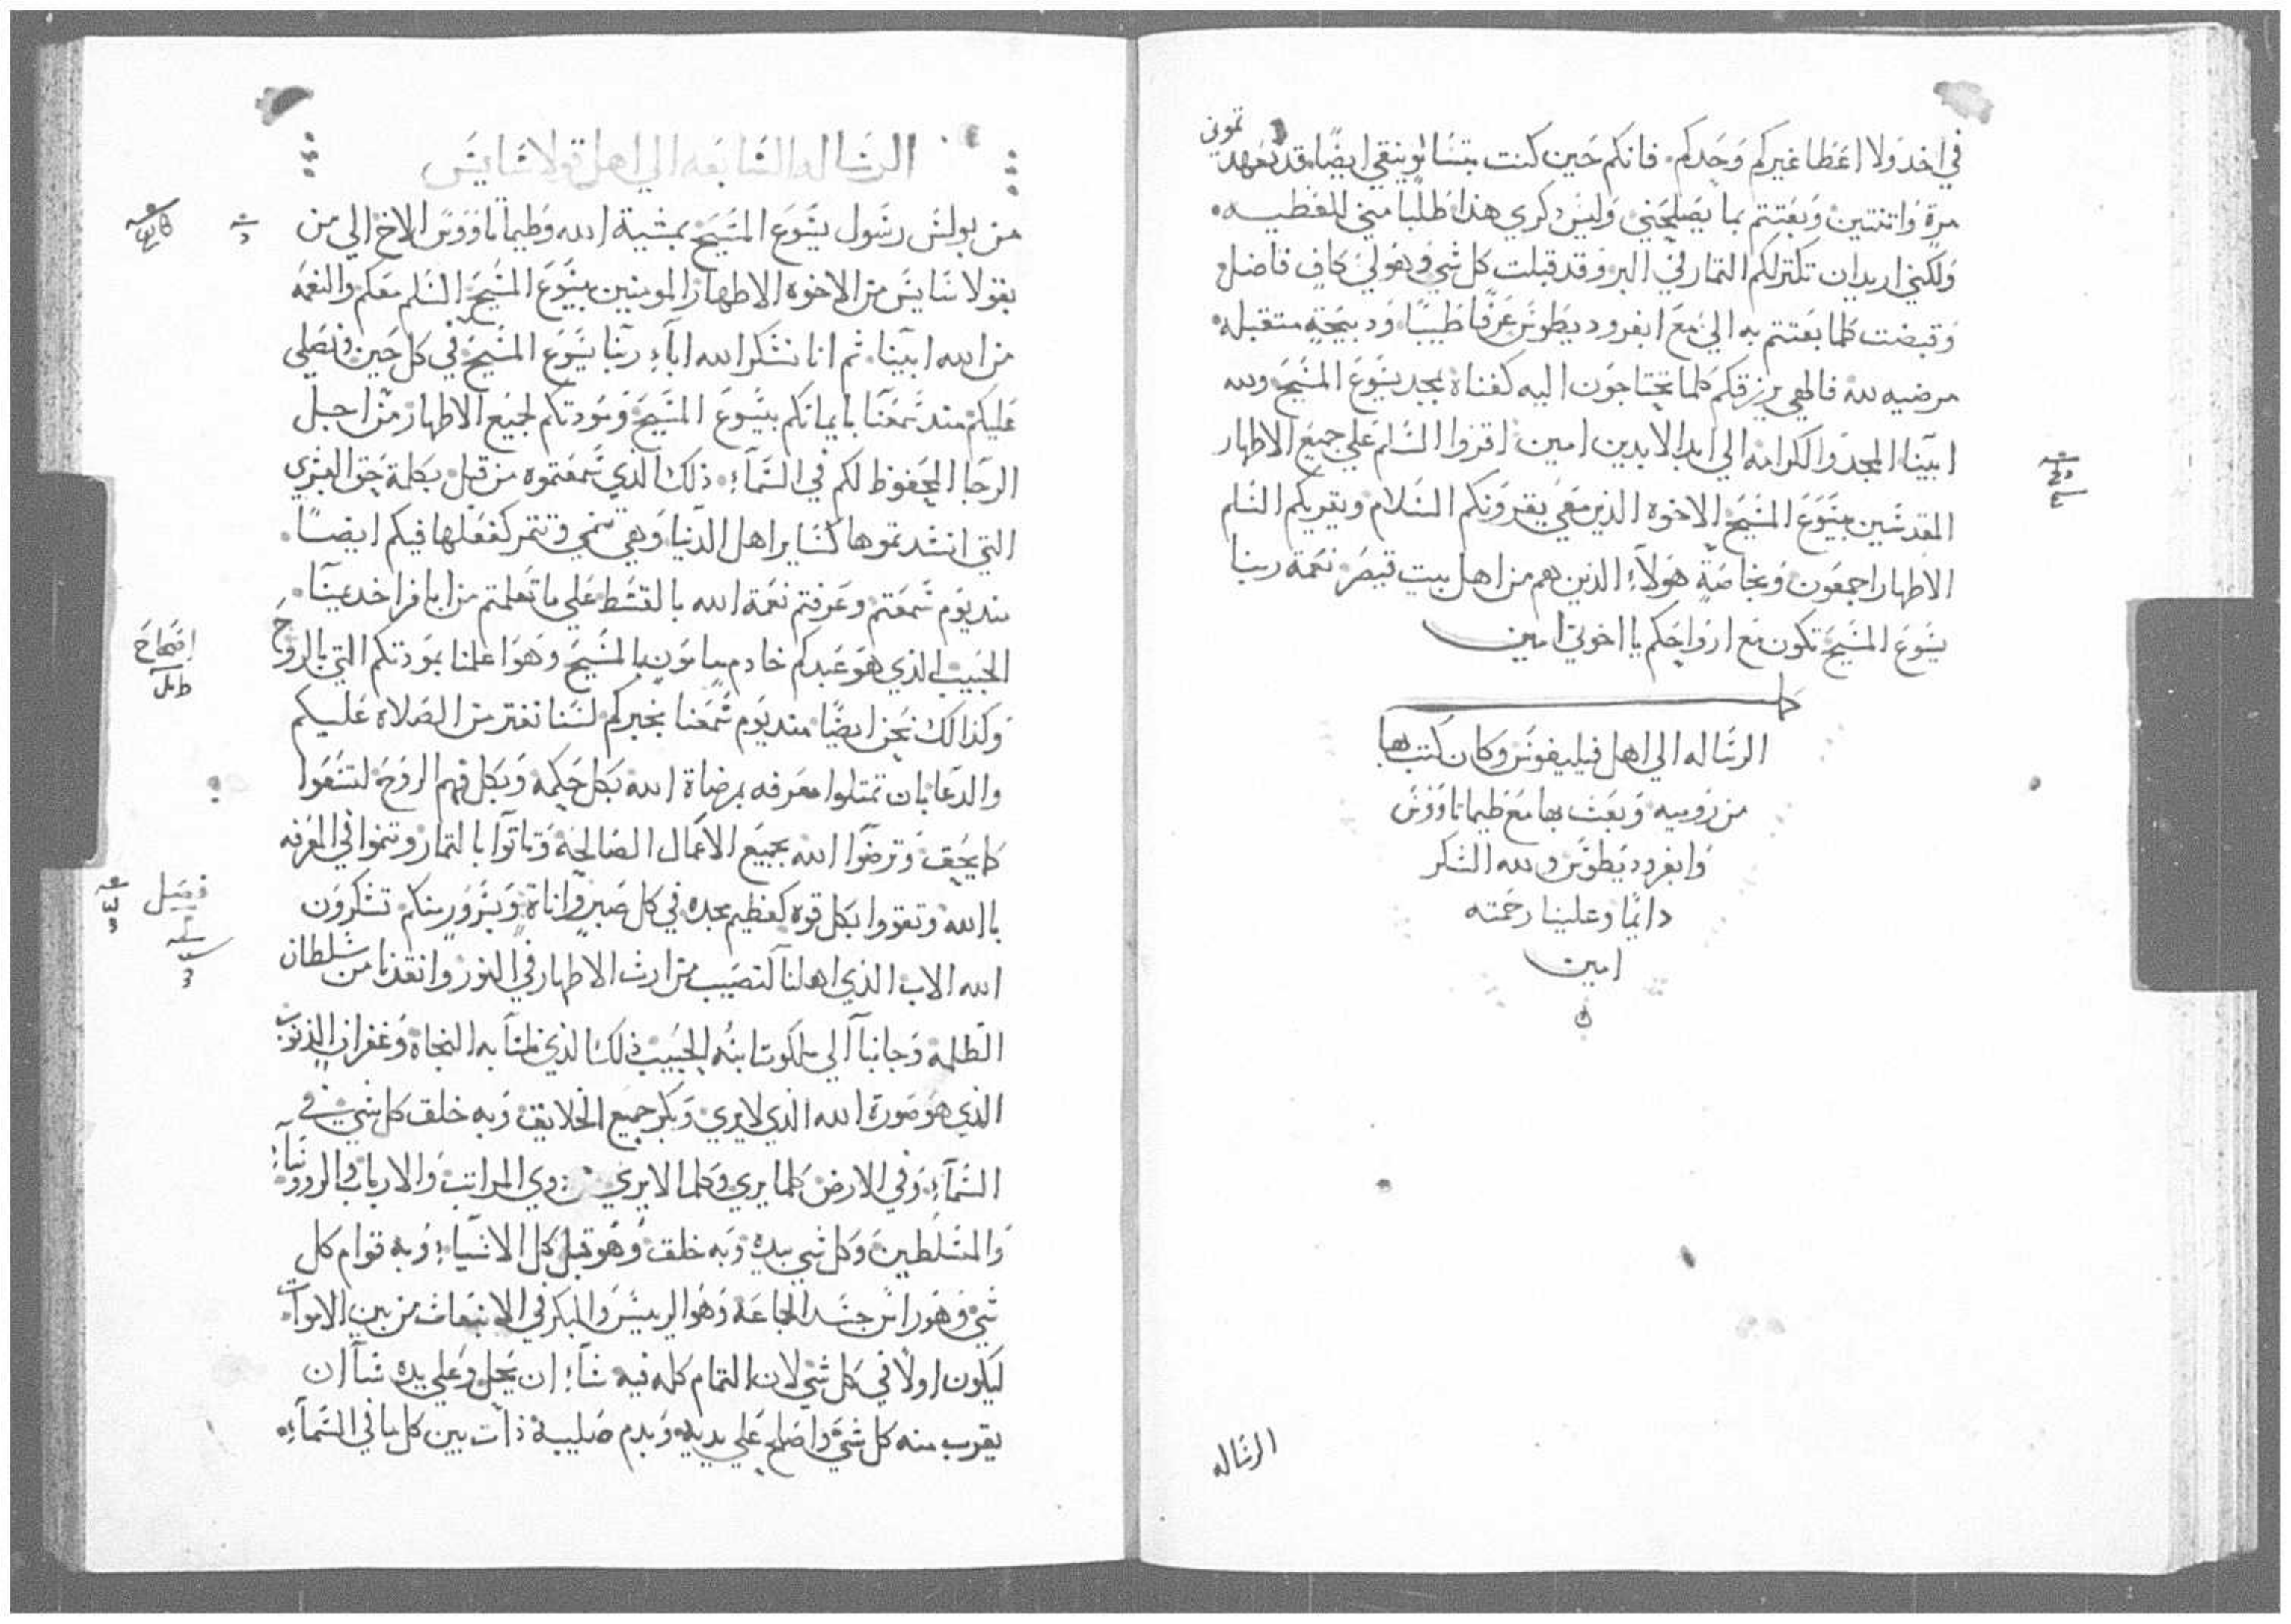 في اخد ولا اعطا غيركم وحدكم. فانكم حين كنت بتسالونيقي ايضًا قد تعهدتموني
مرة واثنتين وبعتتم بما يصلحني وليس دكري هذا طلبًا مني للعطيه.
ولكني اريد ان تكتر لكم التمار في البر وقد قبلت كل شي وهو لي كاف فاضل
وقبضت كلما بعتتم به الي مع ابفروديطوس عرفًا طيبًا ودبيحة متقبله
مرضيه لله فالهي يرزقكم كلما تحتاجون اليه كغناه بمجد يسوع المسيح ولله
ابينا المجد والكرامه الي ابد الابدين امين اقروا السلم علي جميع الاطهار
المقدسين بيسوع المسيح الاخوه الذين معي يقرونكم السلام ويقريكم السلم
الاطهار اجمعون وبخاصة هولاء الذين هم من اهل بيت قيصر نعمة ربنا
يسوع المسيح تكون مع ارواحكم يا اخوتي امين
الرساله الي اهل فيليفوس وكان كتب بها
من روميه وبعث بها مع طيماتاووس
وابفروديطوس ولله الشكر
دائمًا وعلينا رحمته
امين
الرساله
الرساله السابعه الي اهل قولاسايس
من بولس رسول يسوع المسيح بمشية الله وطيماتاووس الاخ الي من
بقولاسايس من الاخوه الاطهار المومنين بيسوع المسيح السلم معكم والنعمه
من الله ابينا. ثم انا نشكر الله اباء ربنا يسوع المسيح في كل حين ونصلي
عليكم مند سمعنا بايمانكم بيسوع المسيح ومودتكم لجميع الاطهار من اجل
الرجا المحفوظ لكم في السماء. ذلك الذي سمعتموه من قبل بكلمة حق البشري
التي انشدتموها كساير اهل الدنيا وهي تنمي وتتمر كفعلها فيكم ايضًا.
مند يوم سمعتم وعرفتم نعمة الله بالقسط علي ما تعلمتم من ابافرا خديمنا.
الحبيب الذي هو عبدكم خادم مامون بالمسيح وهو اعلمنا بمودتكم التي بالروح
وكذالك نحن ايضًا مند يوم سمعنا بخبركم لسنا نفتر من الصلاه عليكم
والدعا بان تمتلوا معرفه برضاة الله بكل حكمه وبكل فهم الروح لتسعوا
كما يحق وترضوا الله بجميع الاعمال الصالحة وتاتوا بالتمار وتنموا في المعرفه
بالله وتقووا بكل قوه كعظيم مجده في كل صبر واناة وبسرور منكم تشكرون
الله الاب الذي اهلنا لنصيب من ارث الاطهار في النور وانقذنا من سلطان
الظلمه وجانبا الي ملكوت ابنه الحبيب ذلك الذي نلنا به النجاة وغفران الذنوب
الذي هو صورة الله الذي لا يري وبكر جميع الخلايق وبه خلق كل شي في
السماء وفي الارض كلما يري وكلما لا يري ذوي المراتب والارباب والروونساء
والمسلطين وكل شي بيده وبه خلق وهو قبل كل الاشياء وبه قوام كل
شي وهو راس جسد الجماعة وهو الرييس والبكر في الانبعاث من بين الاموات
ليكون اولًا في كل شي لان التمام كله فيه شاء ان يحل وعلي يده شاء ان
يقرب منه كل شي واصلح علي يديه وبدم صليبه ذات بين كل ما في السماء
اصحاح
فصل